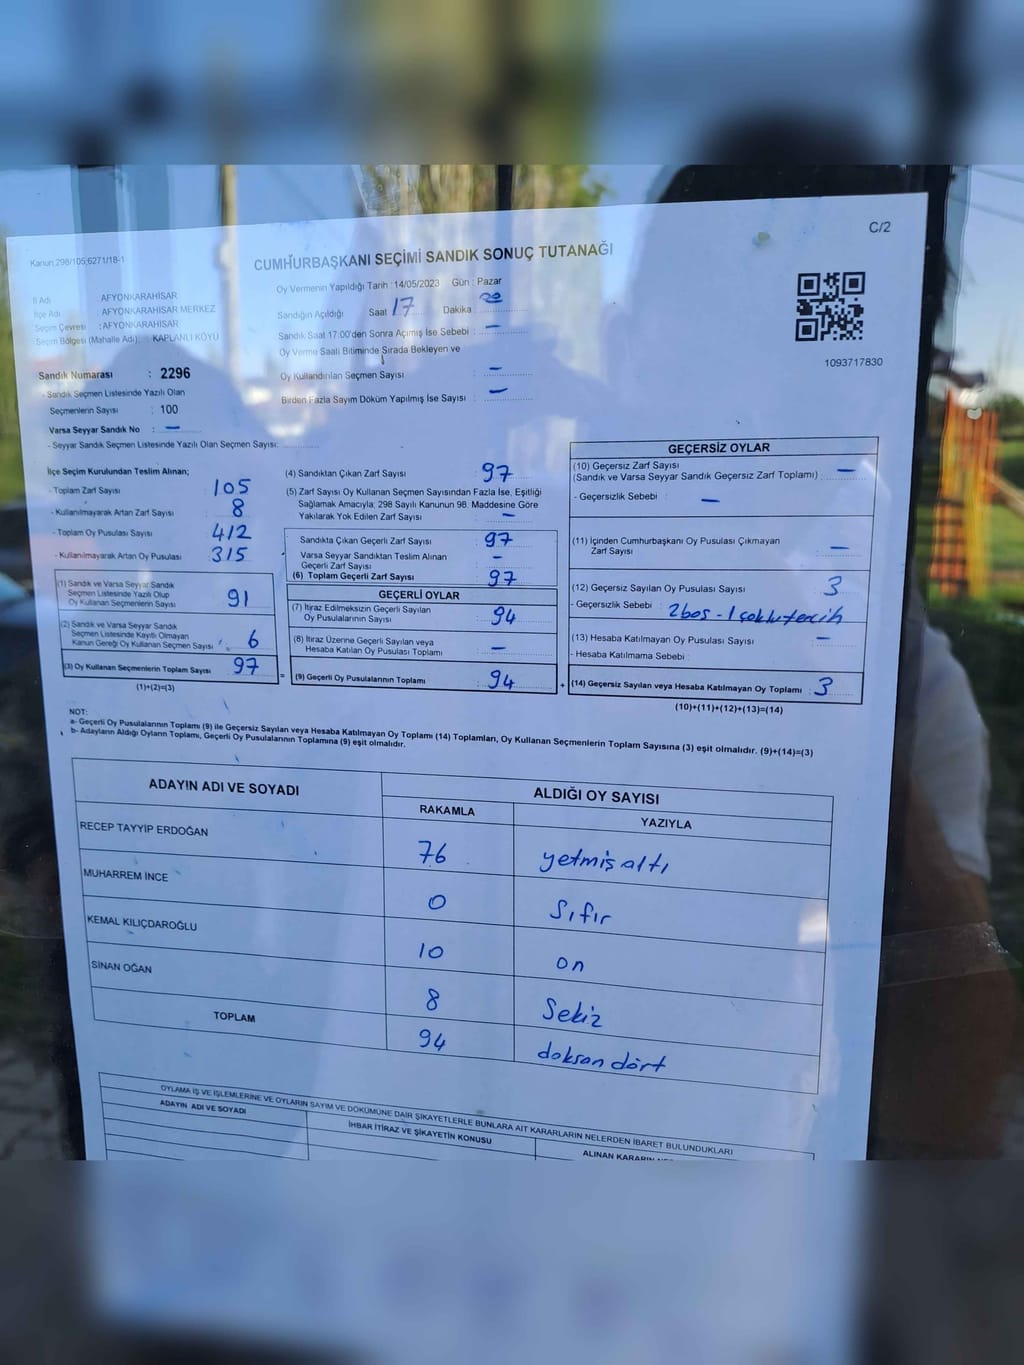 C/2
Kanun 298/105;6271/18-1
CUMHURBAŞKANI SEÇİMİ SANDIK SONUÇ TUTANAĞI
1093717830
İl Adı AFYONKARAHİSAR
İlçe Adı AFYONKARAHİSAR MERKEZ
Seçim Çevresi : AFYONKARAHİSAR
Seçim Bölgesi (Mahalle Adı) : KAPLANLI KÖYÜ
Sandık Numarası : 2296
- Sandık Seçmen Listesinde Yazılı Olan
Seçmenlerin Sayısı : 100
Varsa Seyyar Sandık No : -
- Seyyar Sandık Seçmen Listesinde Yazılı Olan Seçmen Sayısı:
Oy Vermenin Yapıldığı Tarih : 14/05/2023 Gün : Pazar
Sandığın Açıldığı Saat 17 Dakika
Sandık Saat 17:00'den Sonra Açımış İse Sebebi : -
Oy Verme Saati Bitiminde Sırada Bekleyen ve
Oy Kullandırılan Seçmen Sayısı : -
Birden Fazla Sayım Döküm Yapılmış İse Sayısı : -
İlçe Seçim Kurulundan Teslim Alınan;
- Toplam Zarf Sayısı 105
- Kullanılmayarak Artan Zarf Sayısı 8
- Toplam Oy Pusulası Sayısı 412
- Kullanılmayarak Artan Oy Pusulası 315
(1) Sandık ve Varsa Seyyar Sandık
Seçmen Listesinde Yazılı Olup
Oy Kullanan Seçmenlerin Sayısı 91
(2) Sandık ve Varsa Seyyar Sandık
Seçmen Listesinde Kayıtlı Olmayan
Kanun Gereği Oy Kullanan Seçmen Sayısı 6
(3) Oy Kullanan Seçmenlerin Toplam Sayısı 97
(1)+(2)=(3)
(4) Sandıktan Çıkan Zarf Sayısı 97
(5) Zarf Sayısı Oy Kullanan Seçmen Sayısından Fazla İse, Eşitliği
Sağlamak Amacıyla; 298 Sayılı Kanunun 98. Maddesine Göre
Yakılarak Yok Edilen Zarf Sayısı -
Sandıkta Çıkan Geçerli Zarf Sayısı 97
Varsa Seyyar Sandıktan Teslim Alınan
Geçerli Zarf Sayısı -
(6) Toplam Geçerli Zarf Sayısı 97
GEÇERLİ OYLAR
(7) İtiraz Edilmeksizin Geçerli Sayılan
Oy Pusulalarının Sayısı 94
(8) İtiraz Üzerine Geçerli Sayılan veya
Hesaba Katılan Oy Pusulası Toplamı -
= (9) Geçerli Oy Pusulalarının Toplamı 94
GEÇERSİZ OYLAR
(10) Geçersiz Zarf Sayısı
(Sandık ve Varsa Seyyar Sandık Geçersiz Zarf Toplamı) : -
- Geçersizlik Sebebi : -
(11) İçinden Cumhurbaşkanı Oy Pusulası Çıkmayan
Zarf Sayısı -
(12) Geçersiz Sayılan Oy Pusulası Sayısı : 3
- Geçersizlik Sebebi : 2 boş - 1 çoklu tercih
(13) Hesaba Katılmayan Oy Pusulası Sayısı : -
- Hesaba Katılmama Sebebi :
+ (14) Geçersiz Sayılan veya Hesaba Katılmayan Oy Toplamı : 3
(10)+(11)+(12)+(13)=(14)
NOT:
a- Geçerli Oy Pusulalarının Toplamı (9) ile Geçersiz Sayılan veya Hesaba Katılmayan Oy Toplamı (14) Toplamları, Oy Kullanan Seçmenlerin Toplam Sayısına (3) eşit olmalıdır. (9)+(14)=(3)
b- Adayların Aldığı Oyların Toplamı, Geçerli Oy Pusulalarının Toplamına (9) eşit olmalıdır.
ADAYIN ADI VE SOYADI ALDIĞI OY SAYISI
RAKAMLA YAZIYLA
RECEP TAYYİP ERDOĞAN 76 yetmiş altı
MUHARREM İNCE 0 Sıfır
KEMAL KILIÇDAROĞLU 10 on
SİNAN OĞAN 8 Sekiz
TOPLAM 94 doksan dört
OYLAMA İŞ VE İŞLEMLERİNE VE OYLARIN SAYIM VE DÖKÜMÜNE DAİR ŞİKAYETLERLE BUNLARA AİT KARARLARIN NELERDEN İBARET BULUNDUKLARI
ADAYIN ADI VE SOYADI İHBAR İTİRAZ VE ŞİKAYETİN KONUSU ALINAN